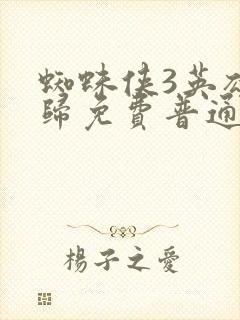 蜘蛛侠3英
歸免費普通
楊子之愛